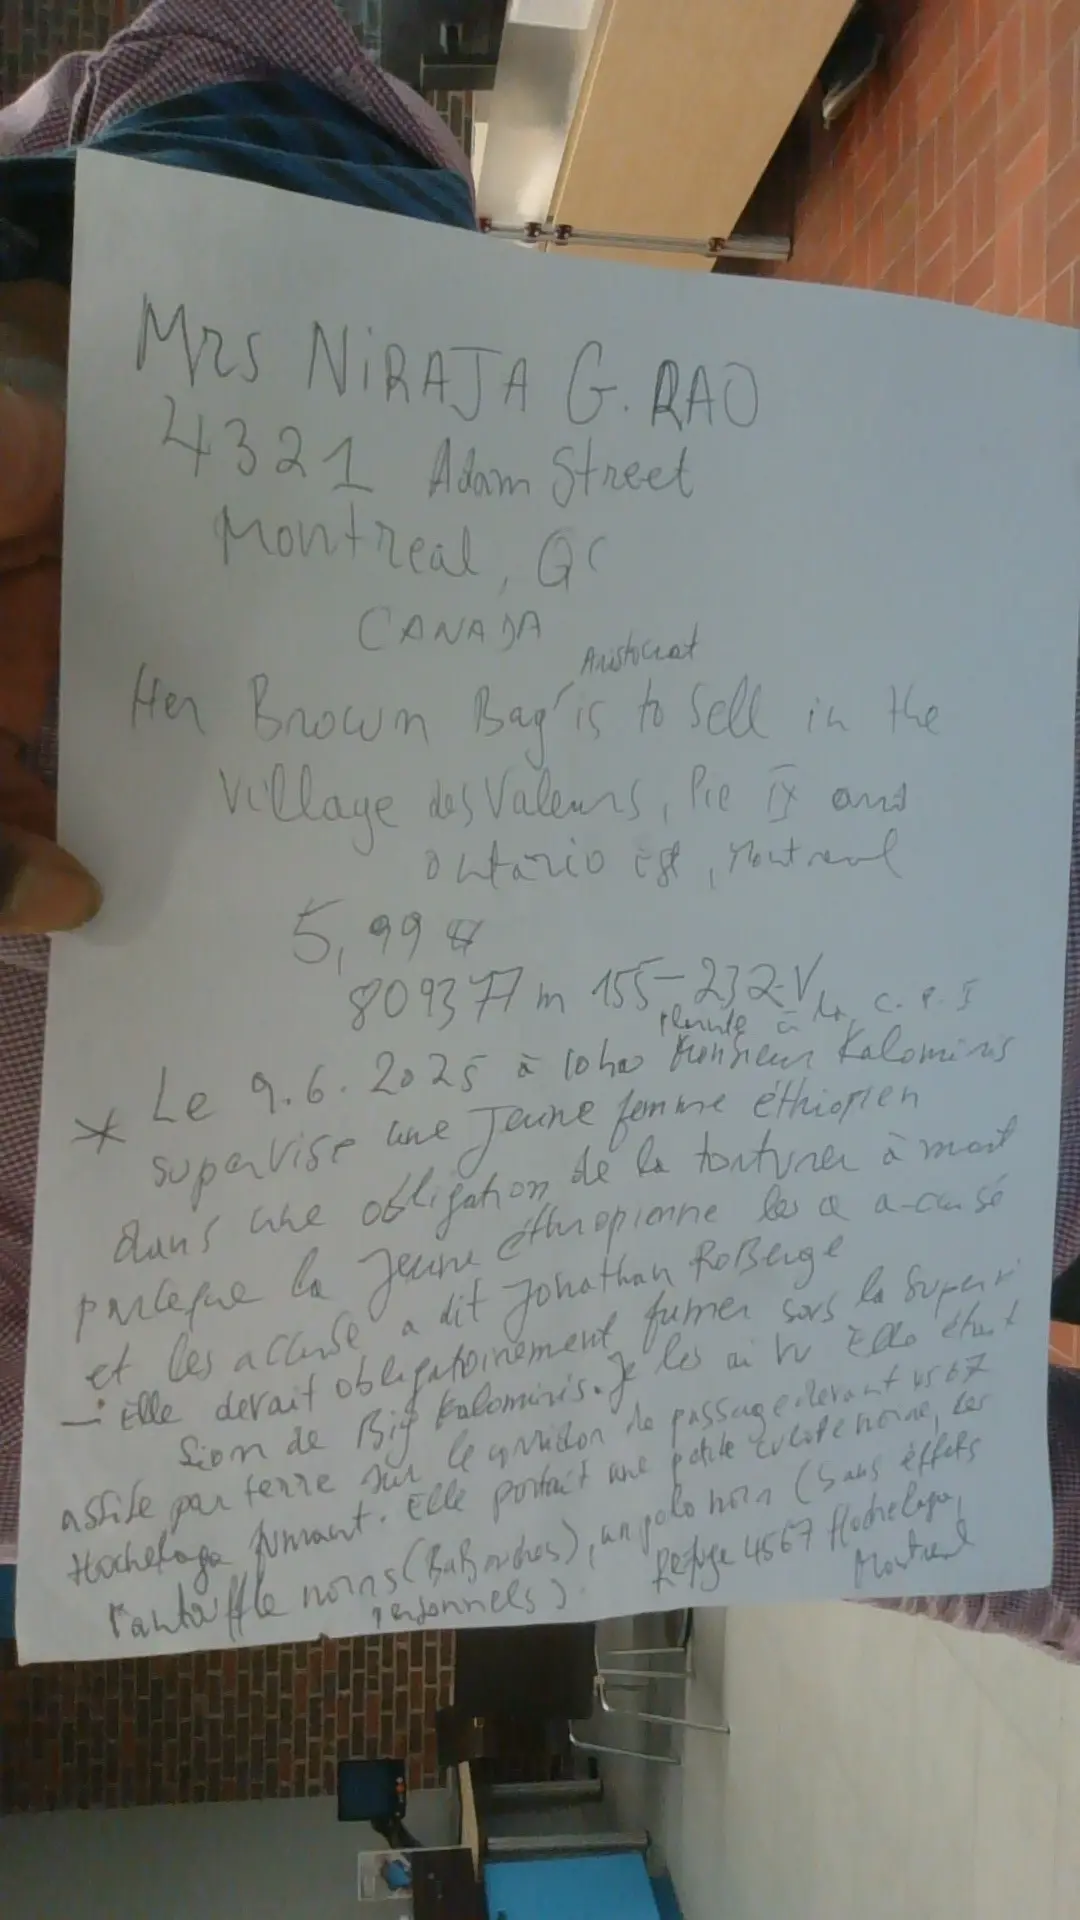 Mrs NiRAJA G. RAO
4321 Adam Street
Montreal, QC
CANADA
Aristocrat
Her Brown Bag is to Sell in the
Village des Valeurs, Pie IX and
Ontario Est, Montreal
5,99 $
809377 m 155-232-V
Plainte à la C.P.I
* Le 9.6.2025 à 10h00 Monsieur Kalominis
supervise une Jeune femme éthiopien
dans une obligation de la torturer à mort
parceque la Jeune éthiopienne les a accusé
et les accuse a dit Jonathan RoBerge
- Elle devait obligatoirement fumer sors la Supervi
sion de Big Kalominis. Je les ai vu Elle était
assise par terre sur le corridor de passage devant 4567
Hochelaga fumant. Elle portait une petite culote noire, des
Pantouffle noirs (BaBouches), un polo noir (Sans effets
personnels). Refuge 4567 Hochelaga,
Montreal